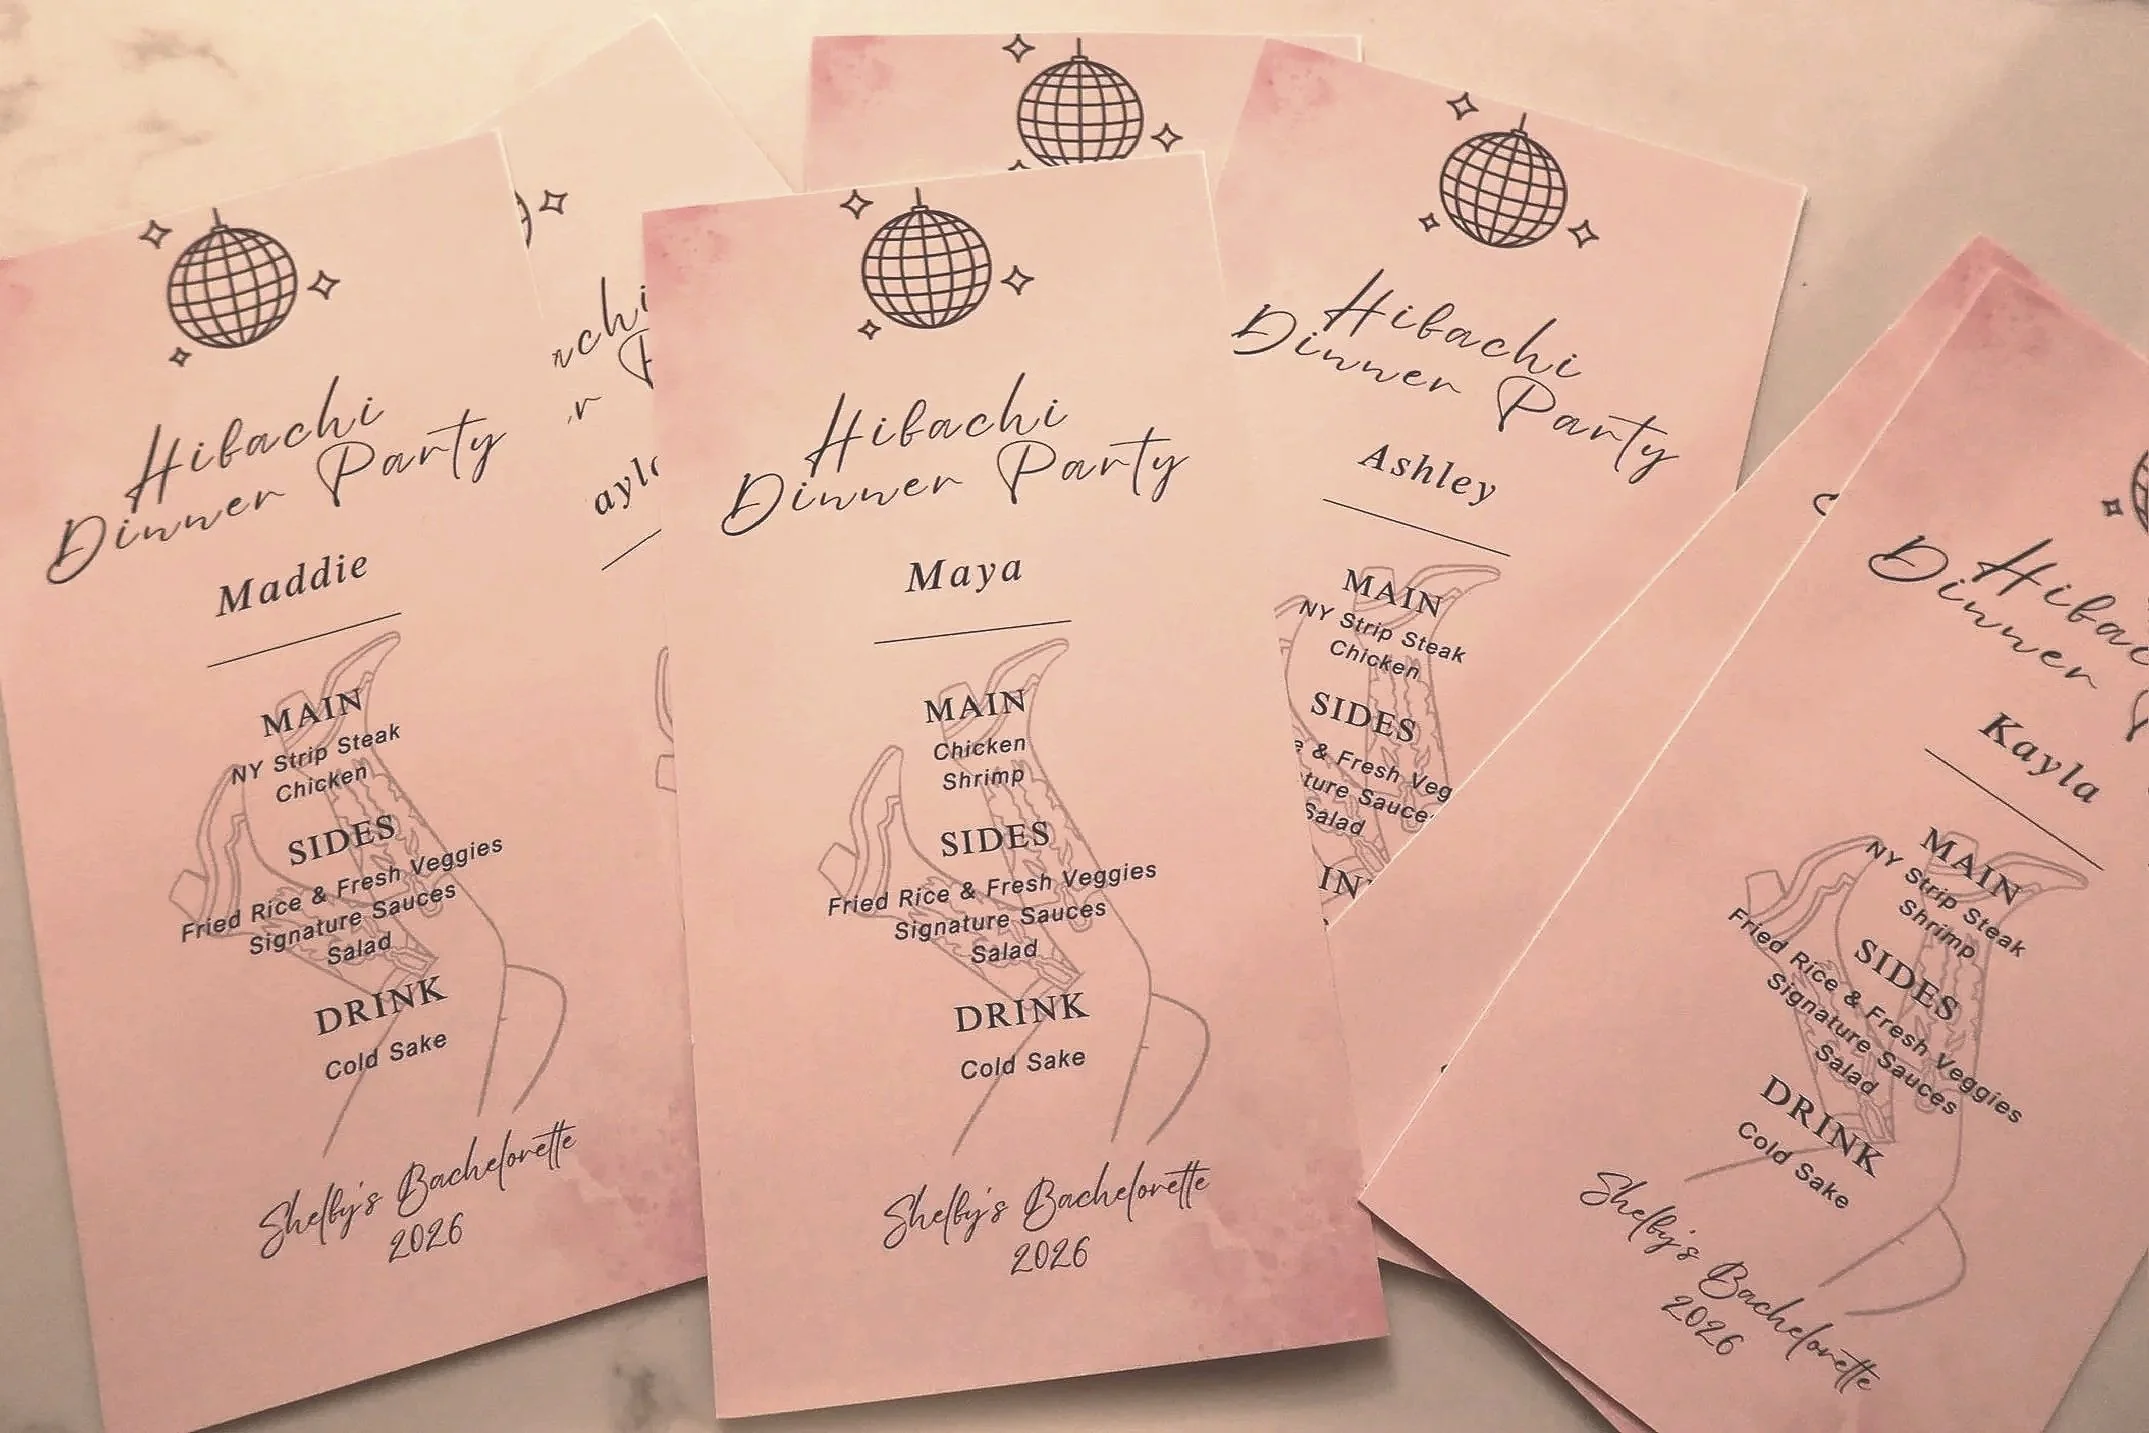 Hibachi
Dinner Party
Maddie
MAIN
NY Strip Steak
Chicken
SIDES
Fried Rice & Fresh Veggies
Signature Sauces
Salad
DRINK
Cold Sake
Shelby's Bachelorette
2026
Hibachi
Dinner Party
Maya
MAIN
Chicken
Shrimp
SIDES
Fried Rice & Fresh Veggies
Signature Sauces
Salad
DRINK
Cold Sake
Shelby's Bachelorette
2026
Hibachi
Dinner Party
Ashley
MAIN
NY Strip Steak
Chicken
SIDES
& Fresh Veg
Salad
Dinner
Kayla
MAIN
NY Strip Steak
Shrimp
SIDES
Fried Rice & Fresh Veggies
Signature Sauces
Salad
DRINK
Cold Sake
Shelby's Bachelorette
2026